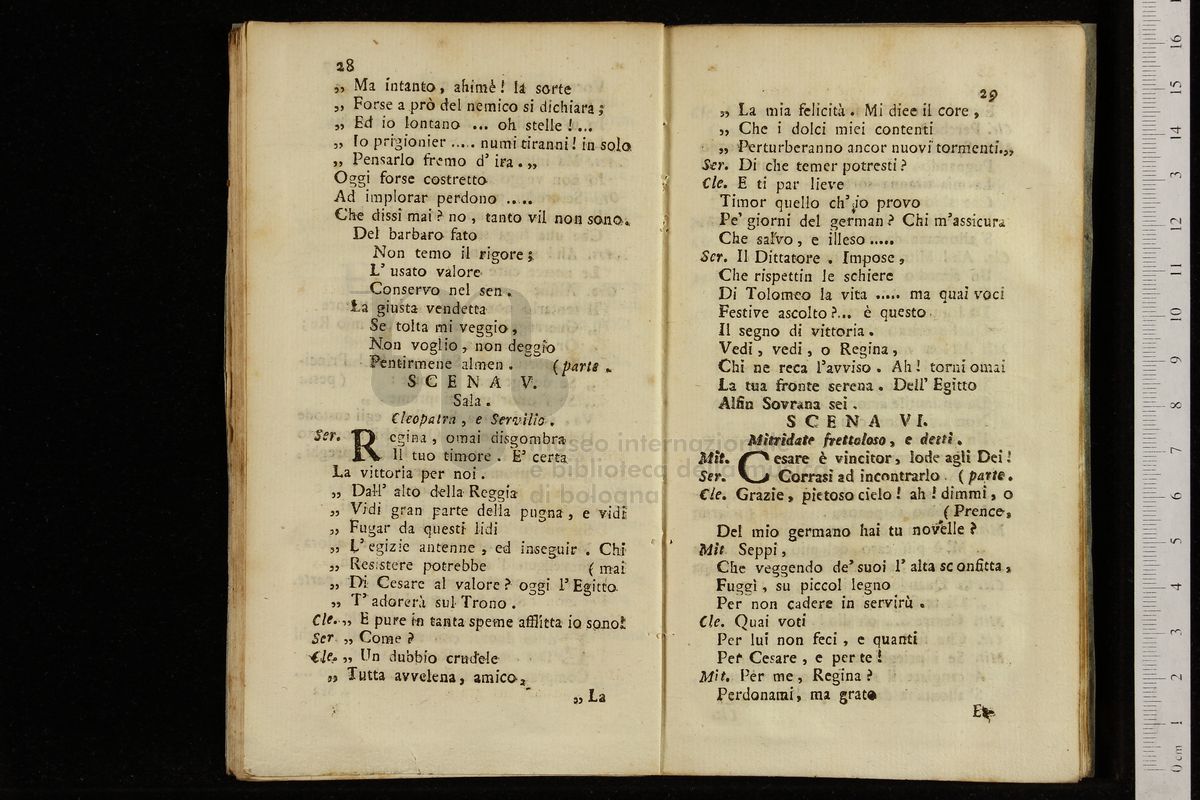 28
„ Ma intanto, ahimè! la sorte
„ Forse a prò del nemico si dichiara;
„ Ed io lontano ... oh stelle!...
„ Io prigionier ..... numi tiranni! in solo
„ Pensarlo fremo d' ira. „
Oggi forse costretto
Ad implorar perdono .....
Che dissi mai? no, tanto vil non sono.
Del barbaro fato
Non temo il rigore;
L' usato valore
Conservo nel sen.
La giusta vendetta
Se tolta mi veggio,
Non voglio, non deggio
Pentirmene almen. (parte.
SCENA V.
Sala.
Cleopatra, e Servilio.
Ser. Regina, omai disgombra
Il tuo timore. E' certa
La vittoria per noi.
„ Dall' alto della Reggia
„ Vidi gran parte della pugna, e vidi
„ Fugar da questi lidi
„ L' egizie antenne, ed inseguir. Chi
„ Resistere potrebbe (mai
„ Di Cesare al valore? oggi l' Egitto
„ T' adorerà sul Trono.
Cle. „ E pure in tanta speme afflitta io sono!
Ser. „ Come?
Cle. „ Un dubbio crudele
„ Tutta avvelena, amico,
„ La
29
„ La mia felicità. Mi dice il core,
„ Che i dolci miei contenti
„ Perturberanno ancor nuovi tormenti.„
Ser. Di che temer potresti?
Cle. E ti par lieve
Timor quello ch' io provo
Pe' giorni del german? Chi m'assicura
Che salvo, e illeso .....
Ser. Il Dittatore. Impose,
Che rispettin le schiere
Di Tolomeo la vita ..... ma quai voci
Festive ascolto?... è questo
Il segno di vittoria.
Vedi, vedi, o Regina,
Chi ne reca l'avviso. Ah! torni omai
La tua fronte serena. Dell' Egitto
Alfin Sovrana sei.
SCENA VI.
Mitridate frettoloso, e detti.
Mit. Cesare è vincitor, lode agli Dei!
Ser. Corrasi ad incontrarlo. (parte.
Cle. Grazie, pietoso cielo! ah! dimmi, o
(Prence,
Del mio germano hai tu novelle?
Mit Seppi,
Che veggendo de' suoi l' alta sconfitta,
Fuggì, su piccol legno
Per non cadere in servirù.
Cle. Quai voti
Per lui non feci, e quanti
Per Cesare, e per te!
Mit. Per me, Regina?
Perdonami, ma grato
museo internazionale
e biblioteca della musica
di bologna
0 cm 1 2 3 4 5 6 7 8 9 10 11 12 13 14 15 16